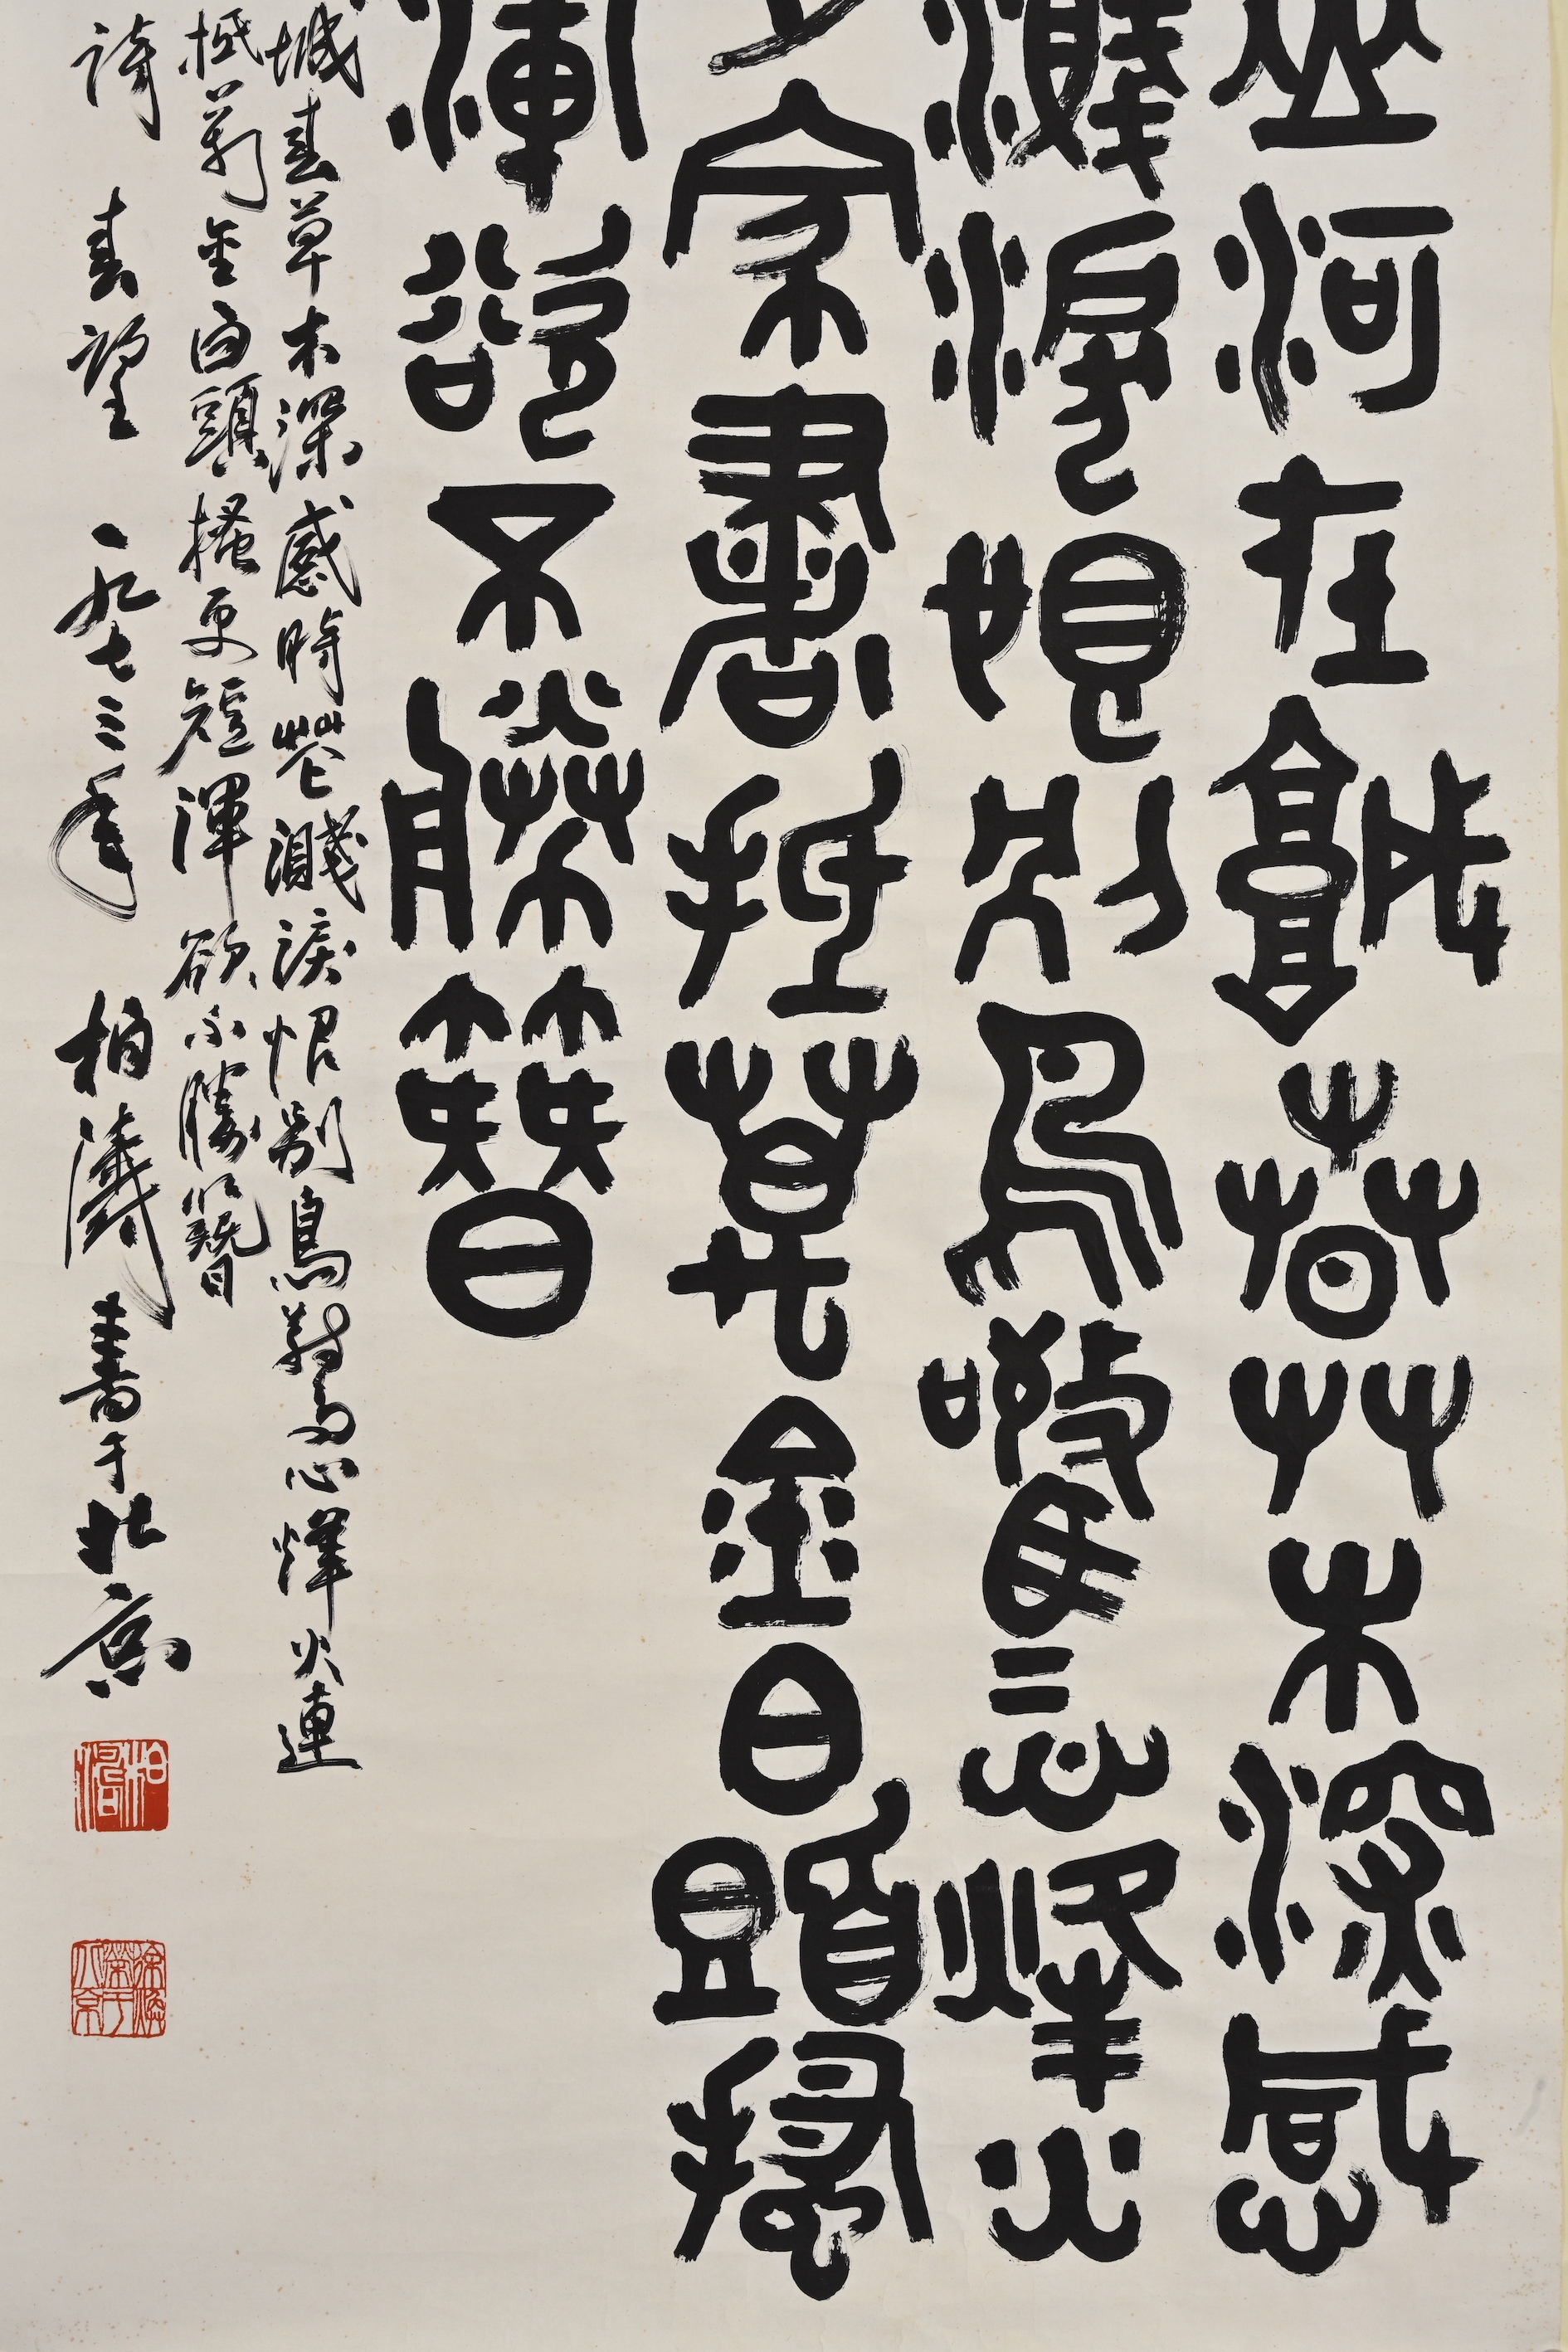 山河在城春草木深感
濺淚恨別鳥驚心烽火
家書抵萬金白頭搔
渾欲不勝簪
城春草木深感時花濺淚恨別鳥驚心烽火連
抵萬金白頭搔更短渾欲不勝簪
詩 春望 一九七三年 柏濤書于北京
柏濤